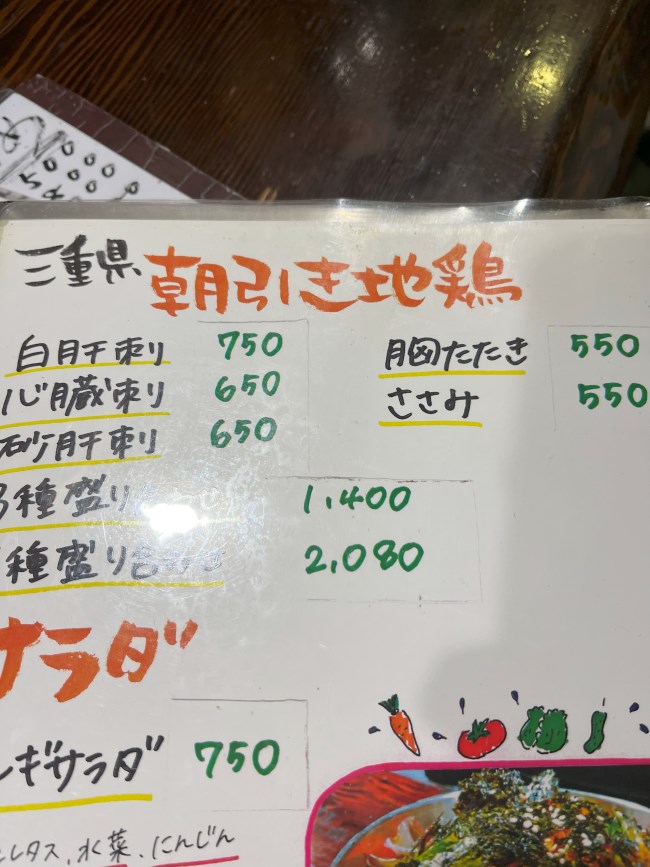 三重県 朝引き地鶏
白肝刺り 750
心臓刺り 650
砂肝刺り 650
胸たたき 550
ささみ 550
3種盛り 1,400
種盛り合わせ 2,080
サラダ
ギサラダ 750
レタス、水菜、にんじん